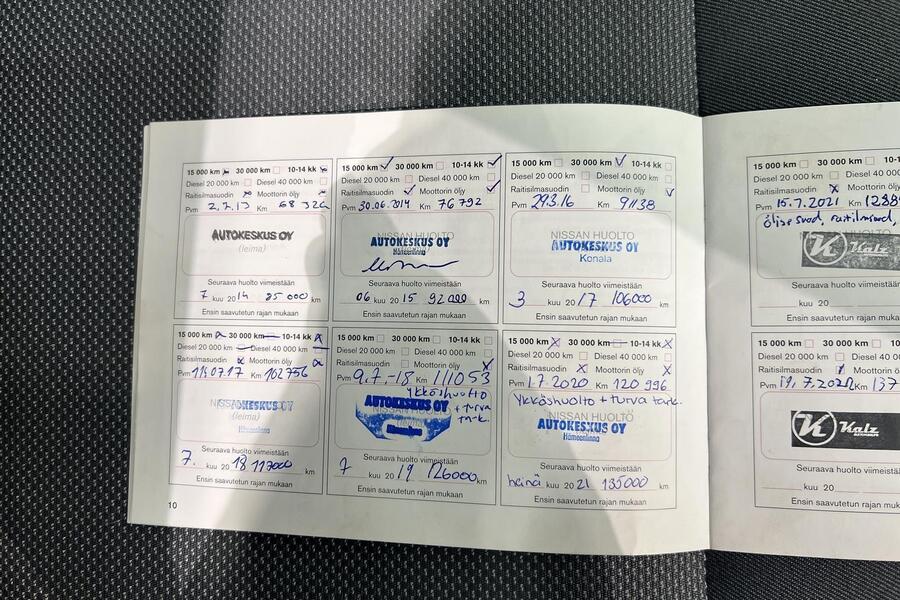 15 000 km 30 000 km 10-14 kk
Diesel 20 000 km Diesel 40 000 km
Raitisilmasuodin Moottorin öljy
Pvm 2.7.13 Km 68 326
AUTOKESKUS OY
(leima)
Seuraava huolto viimeistään
7 kuu 2014 85 000 km
Ensin saavutetun rajan mukaan
15 000 km 30 000 km 10-14 kk
Diesel 20 000 km Diesel 40 000 km
Raitisilmasuodin Moottorin öljy
Pvm 30.06.2014 Km 76 792
NISSAN HUOLTO
AUTOKESKUS OY
Hämeenlinna
Seuraava huolto viimeistään
06 kuu 2015 92 000 km
Ensin saavutetun rajan mukaan
15 000 km 30 000 km 10-14 kk
Diesel 20 000 km Diesel 40 000 km
Raitisilmasuodin Moottorin öljy
Pvm 29.3.16 Km 91138
NISSAN HUOLTO
AUTOKESKUS OY
Konala
Seuraava huolto viimeistään
3 kuu 2017 106000 km
Ensin saavutetun rajan mukaan
15 000 km 30 000 km 10-14 kk
Diesel 20 000 km Diesel 40 000 km
Raitisilmasuodin Moottorin öljy
Pvm 07.17 Km 102756
AUTOKESKUS OY
(leima)
Hämeenlinna
Seuraava huolto viimeistään
7. kuu 2018 117000 km
Ensin saavutetun rajan mukaan
15 000 km 30 000 km 10-14 kk
Diesel 20 000 km Diesel 40 000 km
Raitisilmasuodin Moottorin öljy
Pvm 9.7.-18 Km 111053
Ykköshuolto
+ turva
tark.
AUTOKESKUS OY
NISSAN HUOLTO
Seuraava huolto viimeistään
7 kuu 2019 126000 km
Ensin saavutetun rajan mukaan
15 000 km 30 000 km 10-14 kk
Diesel 20 000 km Diesel 40 000 km
Raitisilmasuodin Moottorin öljy
Pvm 1.7.2020 Km 120 996
Ykköshuolto + turva tark.
NISSAN HUOLTO
AUTOKESKUS OY
Hämeenlinna
Seuraava huolto viimeistään
heinä kuu 2021 135000 km
Ensin saavutetun rajan mukaan
10
15 000 km 30 000 km
Diesel 20 000 km Diesel
Raitisilmasuodin Moottor
Pvm 15.7.2021 Km
raitilsuod,
K Kalz
Seuraava huolto viime
kuu 20
Ensin saavutetun rajan
15 000 km 30 000 km
Diesel 20 000 km Diesel
Raitisilmasuodin Moottor
Km 137
K Kalz
Seuraava huolto viime
kuu 20
Ensin saavutetun rajan